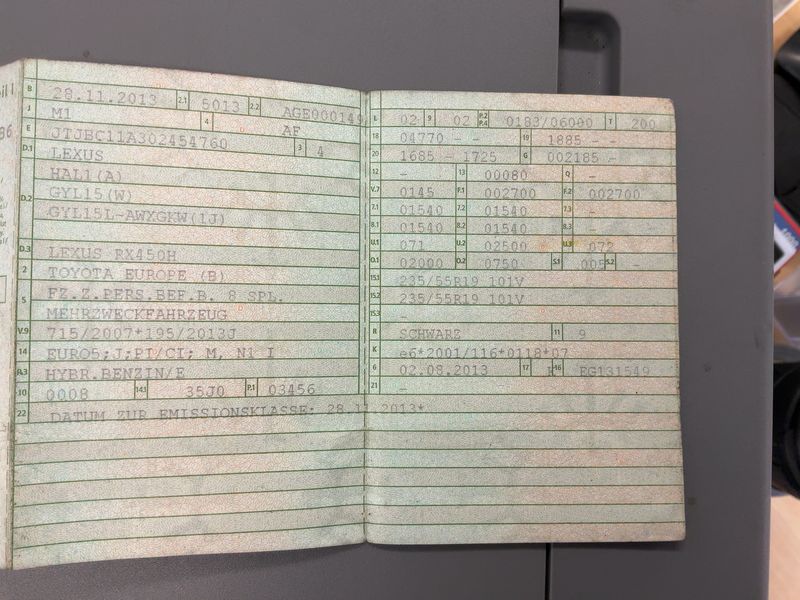 B 28.11.2013 2.1 5013 2.2 AGE000149
J M1 4 AF
E JTJBC11A302454760 3 4
D.1 LEXUS
HAL1(A)
D.2 GYL15(W)
GYL15L-AWXGKW(1J)
D.3 LEXUS RX450H
2 TOYOTA EUROPE (B)
5 FZ.Z.PERS.BEF.B. 8 SPL.
MEHRZWECKFAHRZEUG
V.9 715/2007*195/2013J
14 EURO5;J;PI/CI; M, N1 I
P.3 HYBR.BENZIN/E
10 0008 14.1 35J0 P.1 03456
22 DATUM ZUR EMISSIONSKLASSE: 28.11.2013*
L 02 9 02 P.2 P.4 0183/06000 T 200
18 04770 - - 19 1885 - -
20 1685 - 1725 G 002185 -
12 - 13 00080 Q -
V.7 0145 F.1 002700 F.2 002700
7.1 01540 7.2 01540 7.3 -
8.1 01540 8.2 01540 8.3 -
U.1 071 U.2 02500 U.3 072
O.1 02000 O.2 0750 S.1 005 S.2 -
15.1 235/55R19 101V
15.2 235/55R19 101V
15.3 -
R SCHWARZ 11 9
K e6*2001/116*0118*07
6 02.08.2013 17 K 16 EG131549
21 -